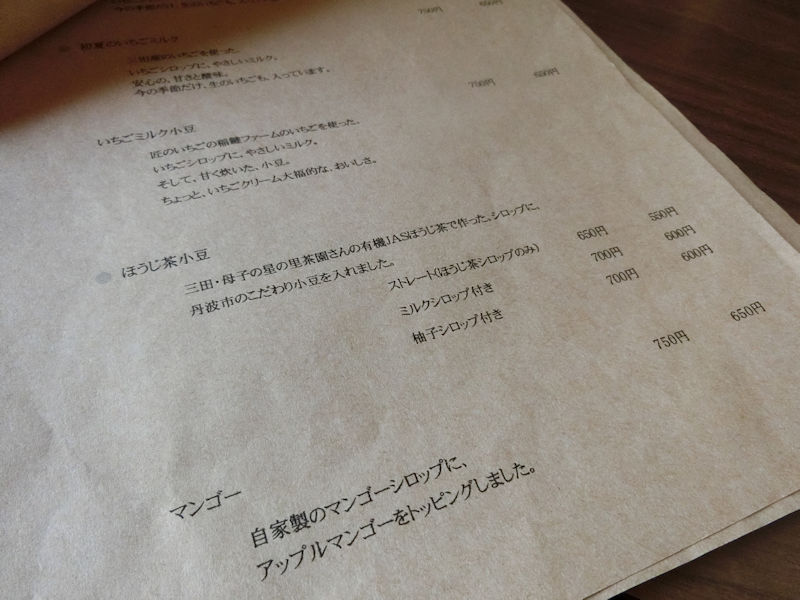 今の季節だけ、生のいちごも、入っています。 750円 650円
初夏のいちごミルク
三田産のいちごを使った、
いちごシロップに、やさしいミルク。
安心の、甘さと酸味。
今の季節だけ、生のいちごも、入っています。 750円 650円
いちごミルク小豆
匠のいちごの稲鍵ファームのいちごを使った、
いちごシロップに、やさしいミルク。
そして、甘く炊いた、小豆。
ちょっと、いちごクリーム大福的な、おいしさ。
ほうじ茶小豆
三田・母子の星の里茶園さんの有機JASほうじ茶で作った。シロップに、
丹波市のこだわり小豆を入れました。
ストレート(ほうじ茶シロップのみ) 650円 550円
ミルクシロップ付き 700円 600円
柚子シロップ付き 700円 600円
750円 650円
マンゴー
自家製のマンゴーシロップに、
アップルマンゴーをトッピングしました。